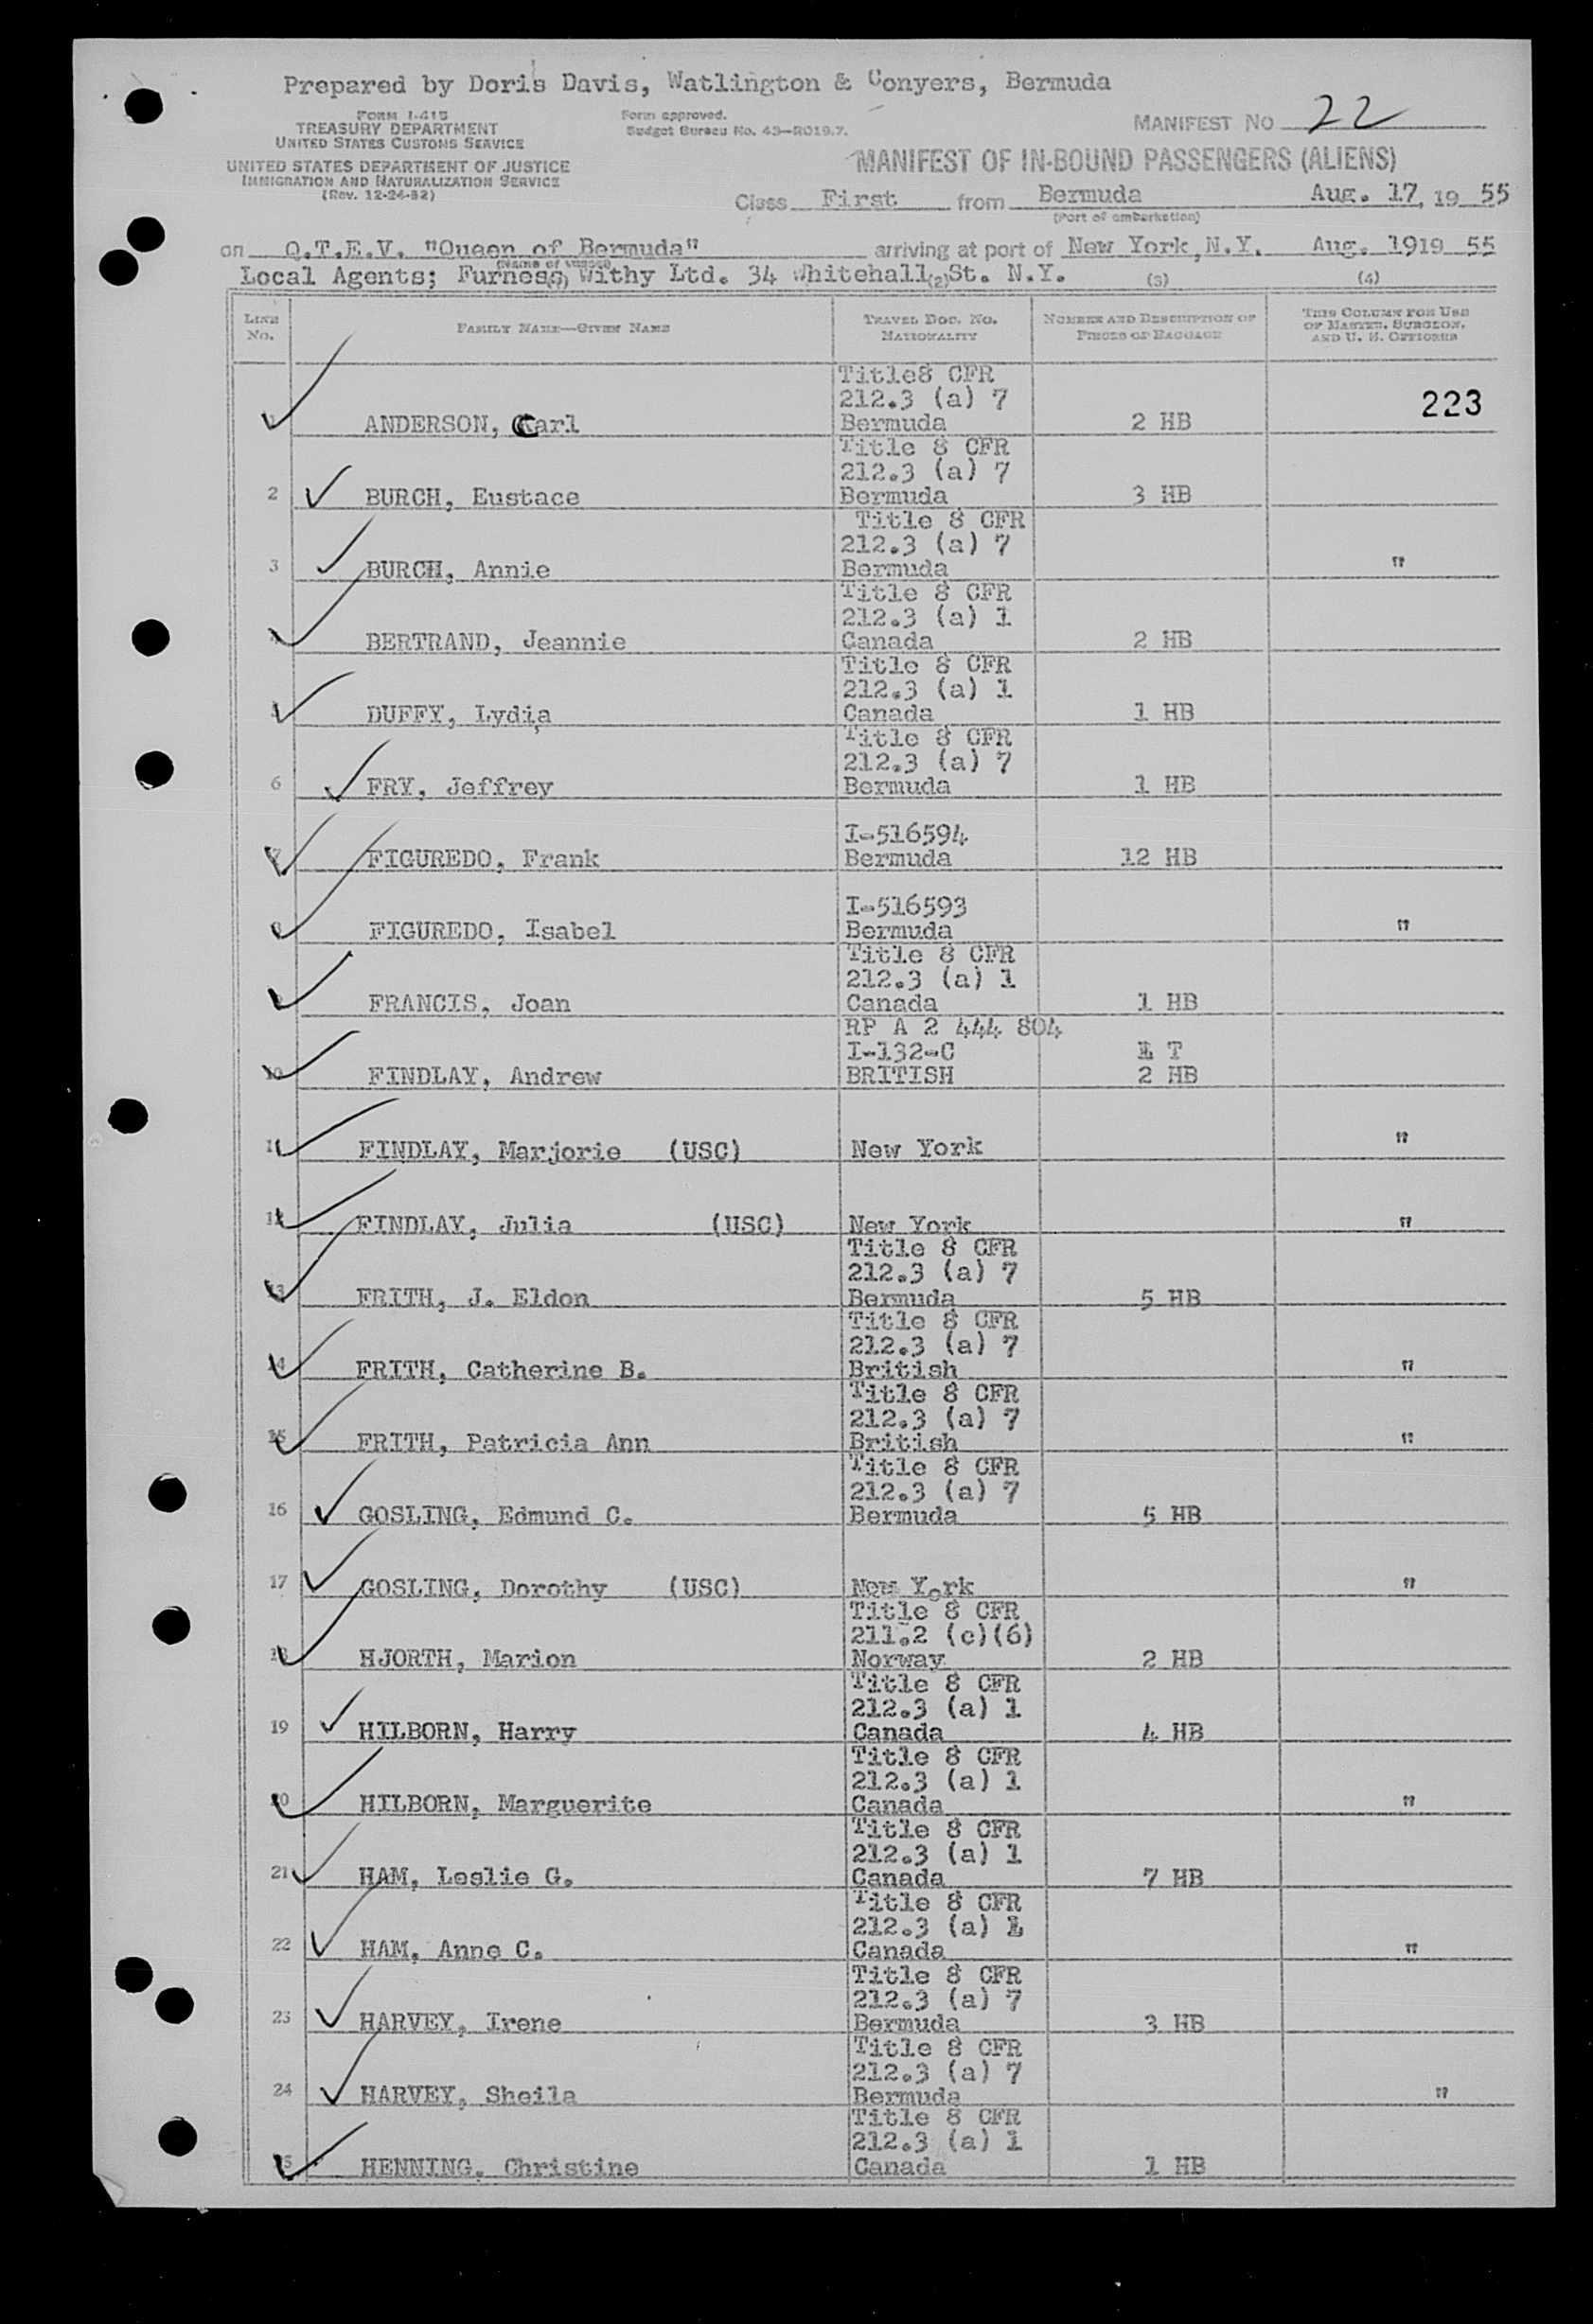 Prepared by Doris Davis, Watlington & Conyers, Bermuda
FORM I-415
TREASURY DEPARTMENT
UNITED STATES CUSTOMS SERVICE
UNITED STATES DEPARTMENT OF JUSTICE
IMMIGRATION AND NATURALIZATION SERVICE
(Rev. 12-24-52)
Form approved.
Budget Bureau No. 43-R019.7.
MANIFEST NO 22
MANIFEST OF IN-BOUND PASSENGERS (ALIENS)
Class First from Bermuda Aug. 17, 19 55
(Port of embarkation)
on Q.T.E.V. "Queen of Bermuda" arriving at port of New York, N.Y. Aug. 19 19 55
(Name of vessel)
Local Agents; Furness Withy Ltd. 34 Whitehall St. N.Y.
(1) (2) (3) (4)
LINE NO. FAMILY NAME—GIVEN NAME TRAVEL DOC. NO. NATIONALITY NUMBER AND DESCRIPTION OF PIECES OF BAGGAGE THIS COLUMN FOR USE OF MASTER, SURGEON, AND U. S. OFFICERS
Title8 CFR
212.3 (a) 7 223
1 ANDERSON, Carl Bermuda 2 HB
Title 8 CFR
212.3 (a) 7
2 BURCH, Eustace Bermuda 3 HB
Title 8 CFR
212.3 (a) 7
3 BURCH, Annie Bermuda "
Title 8 CFR
212.3 (a) 1
4 BERTRAND, Jeannie Canada 2 HB
Title 8 CFR
212.3 (a) 1
5 DUFFY, Lydia Canada 1 HB
Title 8 CFR
212.3 (a) 7
6 FRY, Jeffrey Bermuda 1 HB
I-516594
7 FIGUREDO, Frank Bermuda 12 HB
I-516593
8 FIGUREDO, Isabel Bermuda "
Title 8 CFR
212.3 (a) 1
9 FRANCIS, Joan Canada 1 HB
RP A 2 444 804
I-132-C 1 T
10 FINDLAY, Andrew BRITISH 2 HB
11 FINDLAY, Marjorie (USC) New York "
12 FINDLAY, Julia (USC) New York "
Title 8 CFR
212.3 (a) 7
13 FRITH, J. Eldon Bermuda 5 HB
Title 8 CFR
212.3 (a) 7
14 FRITH, Catherine B. British "
Title 8 CFR
212.3 (a) 7
15 FRITH, Patricia Ann British "
Title 8 CFR
212.3 (a) 7
16 GOSLING, Edmund C. Bermuda 5 HB
17 GOSLING, Dorothy (USC) New York "
Title 8 CFR
211.2 (c)(6)
18 HJORTH, Marion Norway 2 HB
Title 8 CFR
212.3 (a) 1
19 HILBORN, Harry Canada 4 HB
Title 8 CFR
212.3 (a) 1
20 HILBORN, Marguerite Canada "
Title 8 CFR
212.3 (a) 1
21 HAM, Leslie G. Canada 7 HB
Title 8 CFR
212.3 (a) 1
22 HAM, Anne C. Canada "
Title 8 CFR
212.3 (a) 7
23 HARVEY, Irene Bermuda 3 HB
Title 8 CFR
212.3 (a) 7
24 HARVEY, Sheila Bermuda "
Title 8 CFR
212.3 (a) 1
25 HENNING, Christine Canada 1 HB